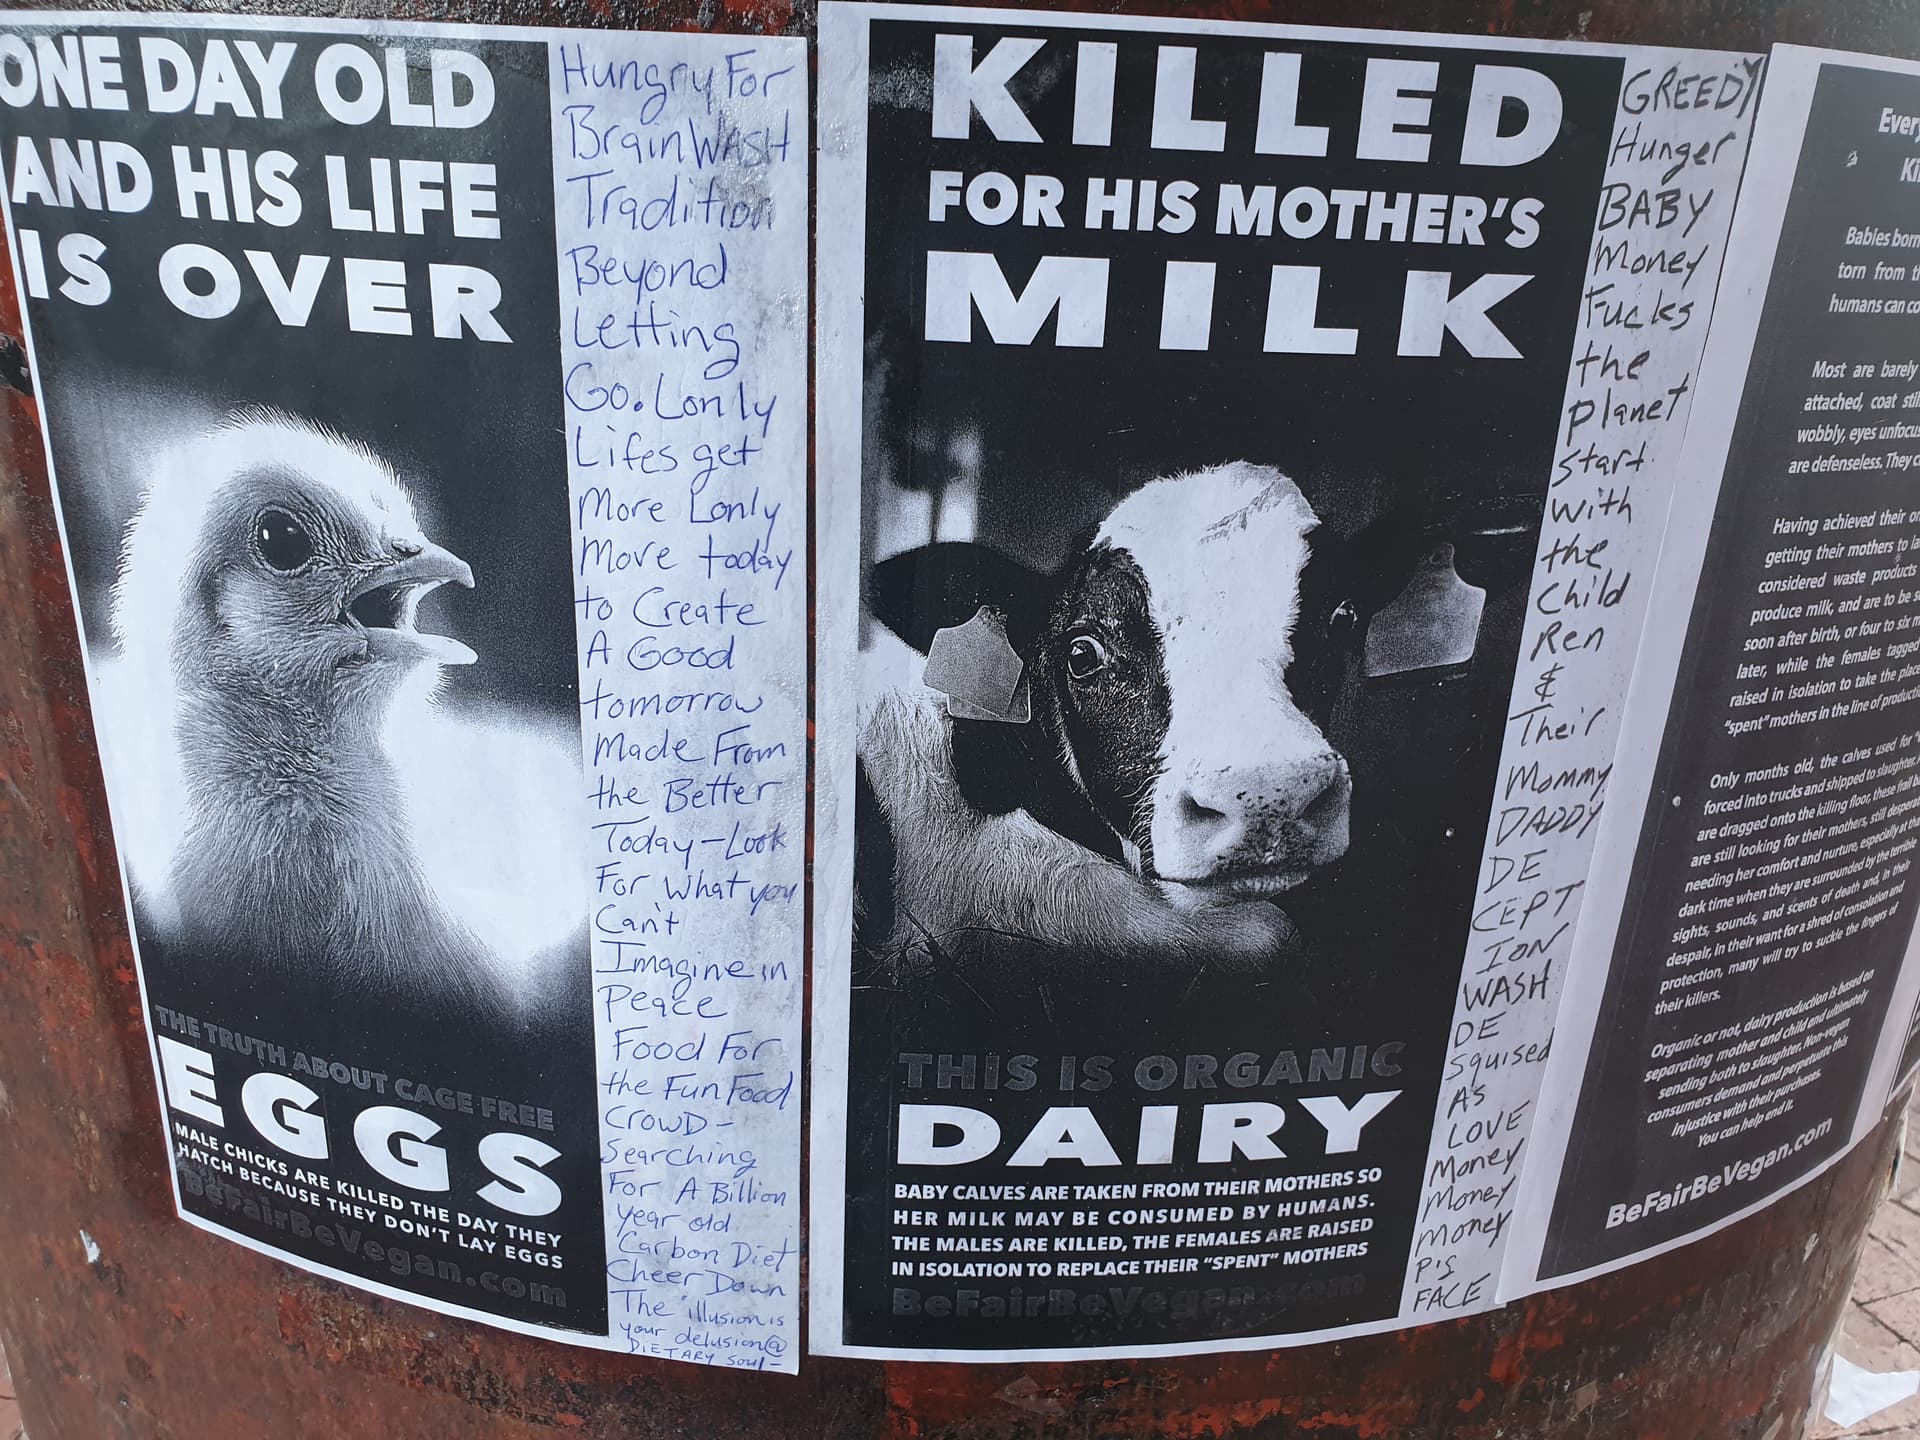 ONE DAY OLD
AND HIS LIFE
IS OVER
THE TRUTH ABOUT CAGE FREE
EGGS
MALE CHICKS ARE KILLED THE DAY THEY
HATCH BECAUSE THEY DON'T LAY EGGS
BeFairBeVegan.com
Hungry For
BrainWASH
Tradition
Beyond
Letting
Go. Lonly
Lifes get
More Lonly
Move today
to Create
A Good
tomorrow
Made From
the Better
Today - Look
For What you
Can't
Imagine in
Peace
Food For
the Fun Food
CROWD -
Searching
For A Billion
year old
Carbon Diet
Cheer Down
The illusion is
your delusion@
DIETARY SOUL -
KILLED
FOR HIS MOTHER'S
MILK
THIS IS ORGANIC
DAIRY
BABY CALVES ARE TAKEN FROM THEIR MOTHERS SO
HER MILK MAY BE CONSUMED BY HUMANS.
THE MALES ARE KILLED, THE FEMALES ARE RAISED
IN ISOLATION TO REPLACE THEIR "SPENT" MOTHERS
BeFairBeVegan.com
GREEDY
Hunger
BABY
Money
Fucks
the
planet
start
with
the
Child
Ren
&
Their
Mommy
DADDY
DE
CEPT
ION
WASH
DE
Squised
AS
LOVE
Money
Money
Money
P.S
FACE
Babies born
torn from
humans can
Most are barely
attached, coat
wobbly, eyes
are defenseless. They
Having achieved their
getting their mothers to
considered waste products
produce milk, and are to be
soon after birth, or four to six
later, while the females tagged
raised in isolation to take the place
"spent" mothers in the line of
Only months old, the calves used for
forced into trucks and shipped to slaughter.
are dragged onto the killing floor, these frail
are still looking for their mothers, still
needing her comfort and nurture, especially at
dark time when they are surrounded by the terrible
sights, sounds, and scents of death and, in their
despair, in their want for a shred of consolation and
protection, many will try to suckle the fingers of
their killers.
Organic or not, dairy production is based on
separating mother and child and ultimately
sending both to slaughter. Non-vegan
consumers demand and perpetuate this
injustice with their purchases.
You can help end it.
BeFairBeVegan.com